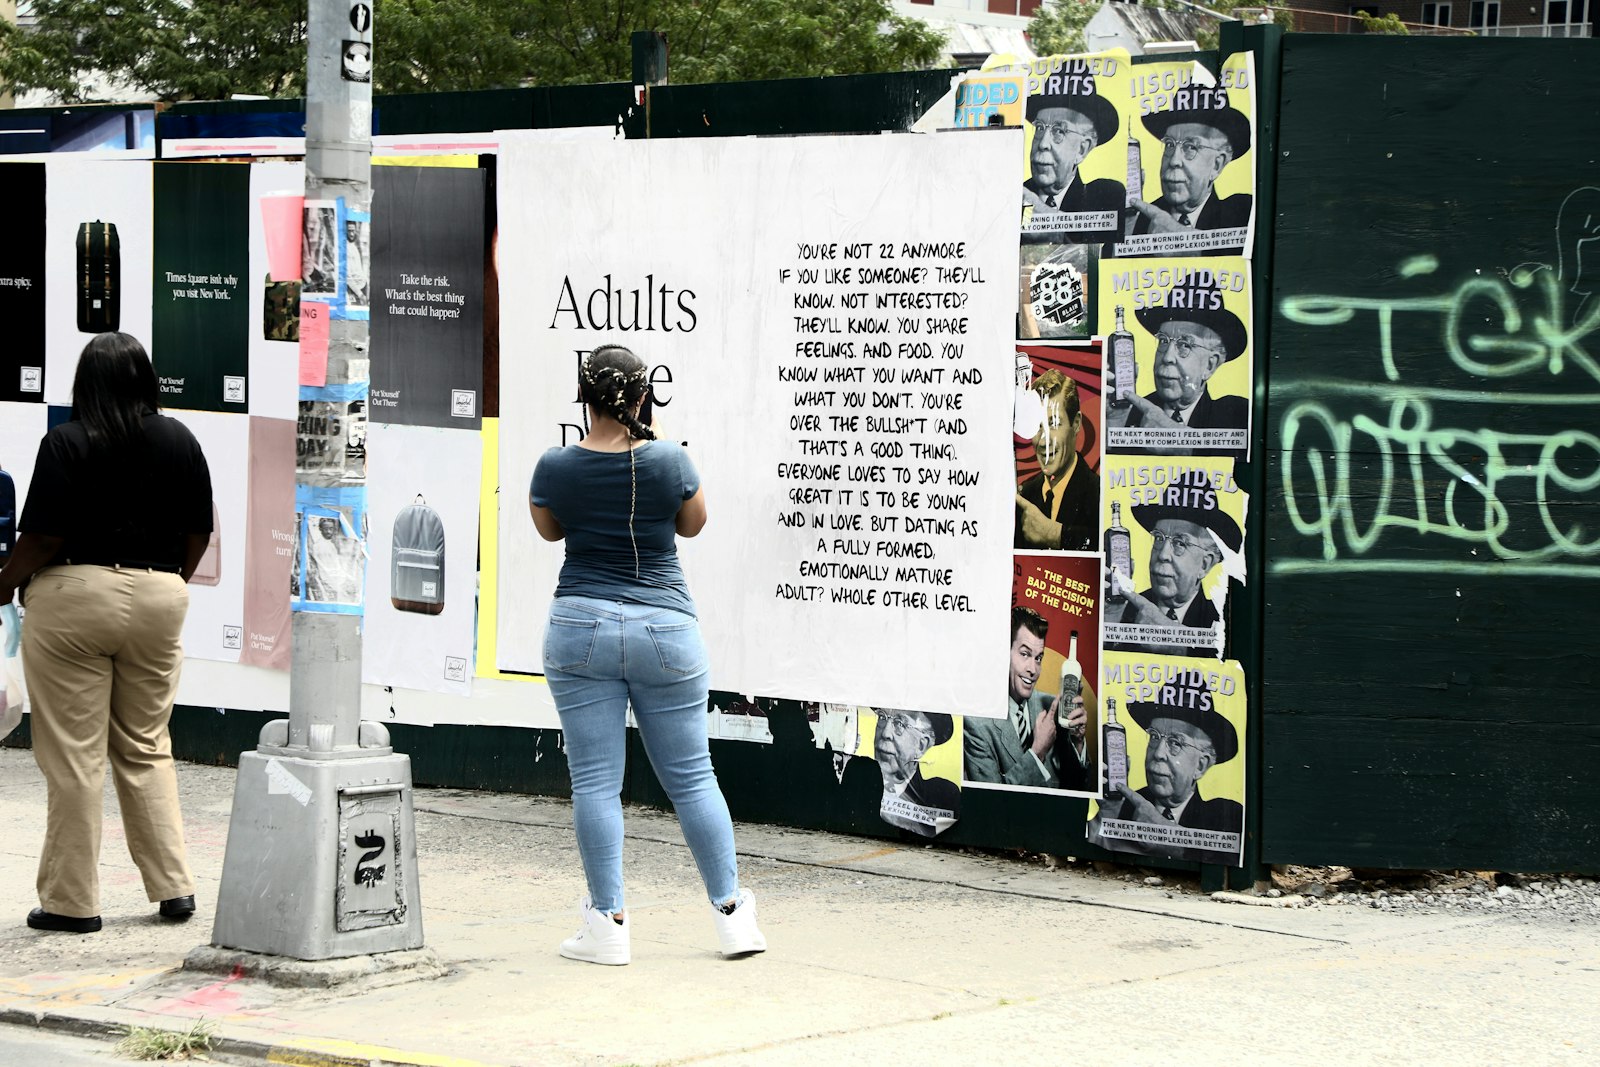 xtra spicy.
Times Square isn't why
you visit New York.
Put Yourself
Out There
Take the risk.
What's the best thing
that could happen?
Put Yourself
Out There
Wrong
turn
Put Yourself
Out There
NG
KING
DAY
Adults
YOU'RE NOT 22 ANYMORE.
IF YOU LIKE SOMEONE? THEY'LL
KNOW. NOT INTERESTED?
THEY'LL KNOW. YOU SHARE
FEELINGS. AND FOOD. YOU
KNOW WHAT YOU WANT AND
WHAT YOU DON'T. YOU'RE
OVER THE BULLSH*T (AND
THAT'S A GOOD THING).
EVERYONE LOVES TO SAY HOW
GREAT IT IS TO BE YOUNG
AND IN LOVE. BUT DATING AS
A FULLY FORMED,
EMOTIONALLY MATURE
ADULT? WHOLE OTHER LEVEL.
UIDED
RITS
SGUIDED
PIRITS
RNING I FEEL BRIGHT AND
Y COMPLEXION IS BETTER.
IISGU ED
SPIRITS
THE NEXT MORNING I FEEL BRIGHT AN
NEW, AND MY COMPLEXION IS BETTER.
88
MISGUIDED
SPIRITS
THE NEXT MORNING I FEEL BRIGHT AND
NEW, AND MY COMPLEXION IS BETTER.
MISGUIDED
SPIRITS
THE NEXT MORNING I FEEL BRIGH
NEW, AND MY COMPLEXION IS B
"THE BEST
BAD DECISION
OF THE DAY."
MISGUIDED
SPIRITS
THE NEXT MORNING I FEEL BRIGHT AND
NEW, AND MY COMPLEXION IS BETTER.
G I FEEL BRIGHT AND
PLEXION IS BET
TGK